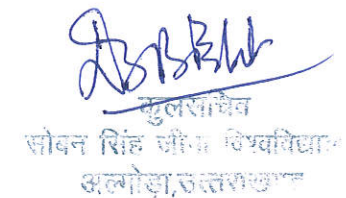 कुलसचिव
सोबन सिंह जीना विश्वविद्या
अल्मोड़ा,उत्तराखण्ड